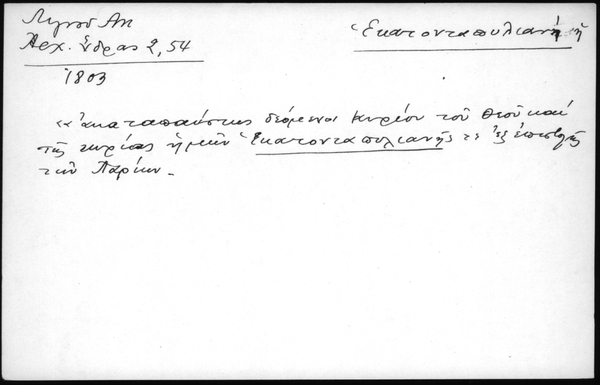 Λιγνοῦ Ἀν
Ἀρχ. Ὕδρας 2, 54
1803
Ἑκατονταπυλιανή ἡ
«ἀκαταπαύστως δεόμενοι Κυρίου τοῦ Θεοῦ καί
τῆς κυρίας ἡμῶν Ἑκατονταπυλιανῆς τε ἐξ ἐπιστολῆς
τῶν Παρίων_